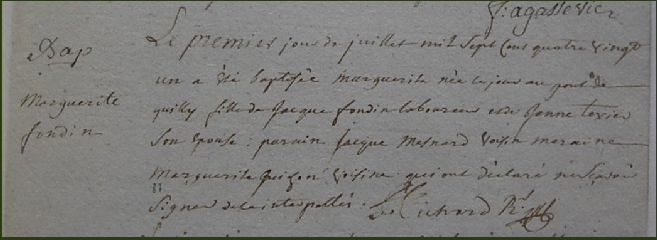 J: agassevier
Bap
Marguerite
fondin
Le premier jour de juillet mil sept cens quatre vingt
un a été baptisée marguerite née le jour au pont de
quilly fille de Jacque fondin laboureur et de Jeanne texier
son epouse: parain Jacque Mesnard voisin maraine
Marguerite voisine qui ont déclaré ne scavoir
signer de ce interpellés. Richard